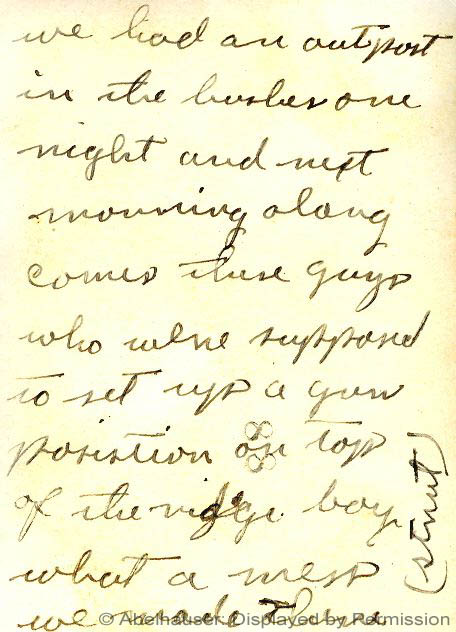 we had an outpost
in the bushes one
night and next
mourning along
comes these guys
who were supposed
to set up a gun
posistion on top
of the ridge boy
what a mess
(strut)
we made
© Abelhauser: Displayed by Permission